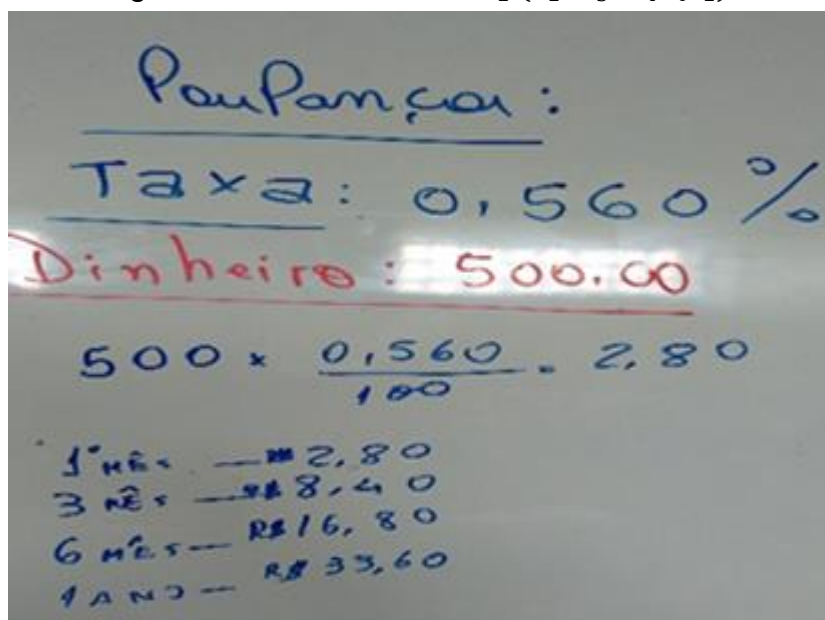 Poupança:
Taxa: 0,560%
Dinheiro: 500,00
500 x 0,560/100 = 2,80
1º MÊS — R$ 2,80
3 MÊS — R$ 8,40
6 MÊS — R$ 16,80
1 ANO — R$ 33,60